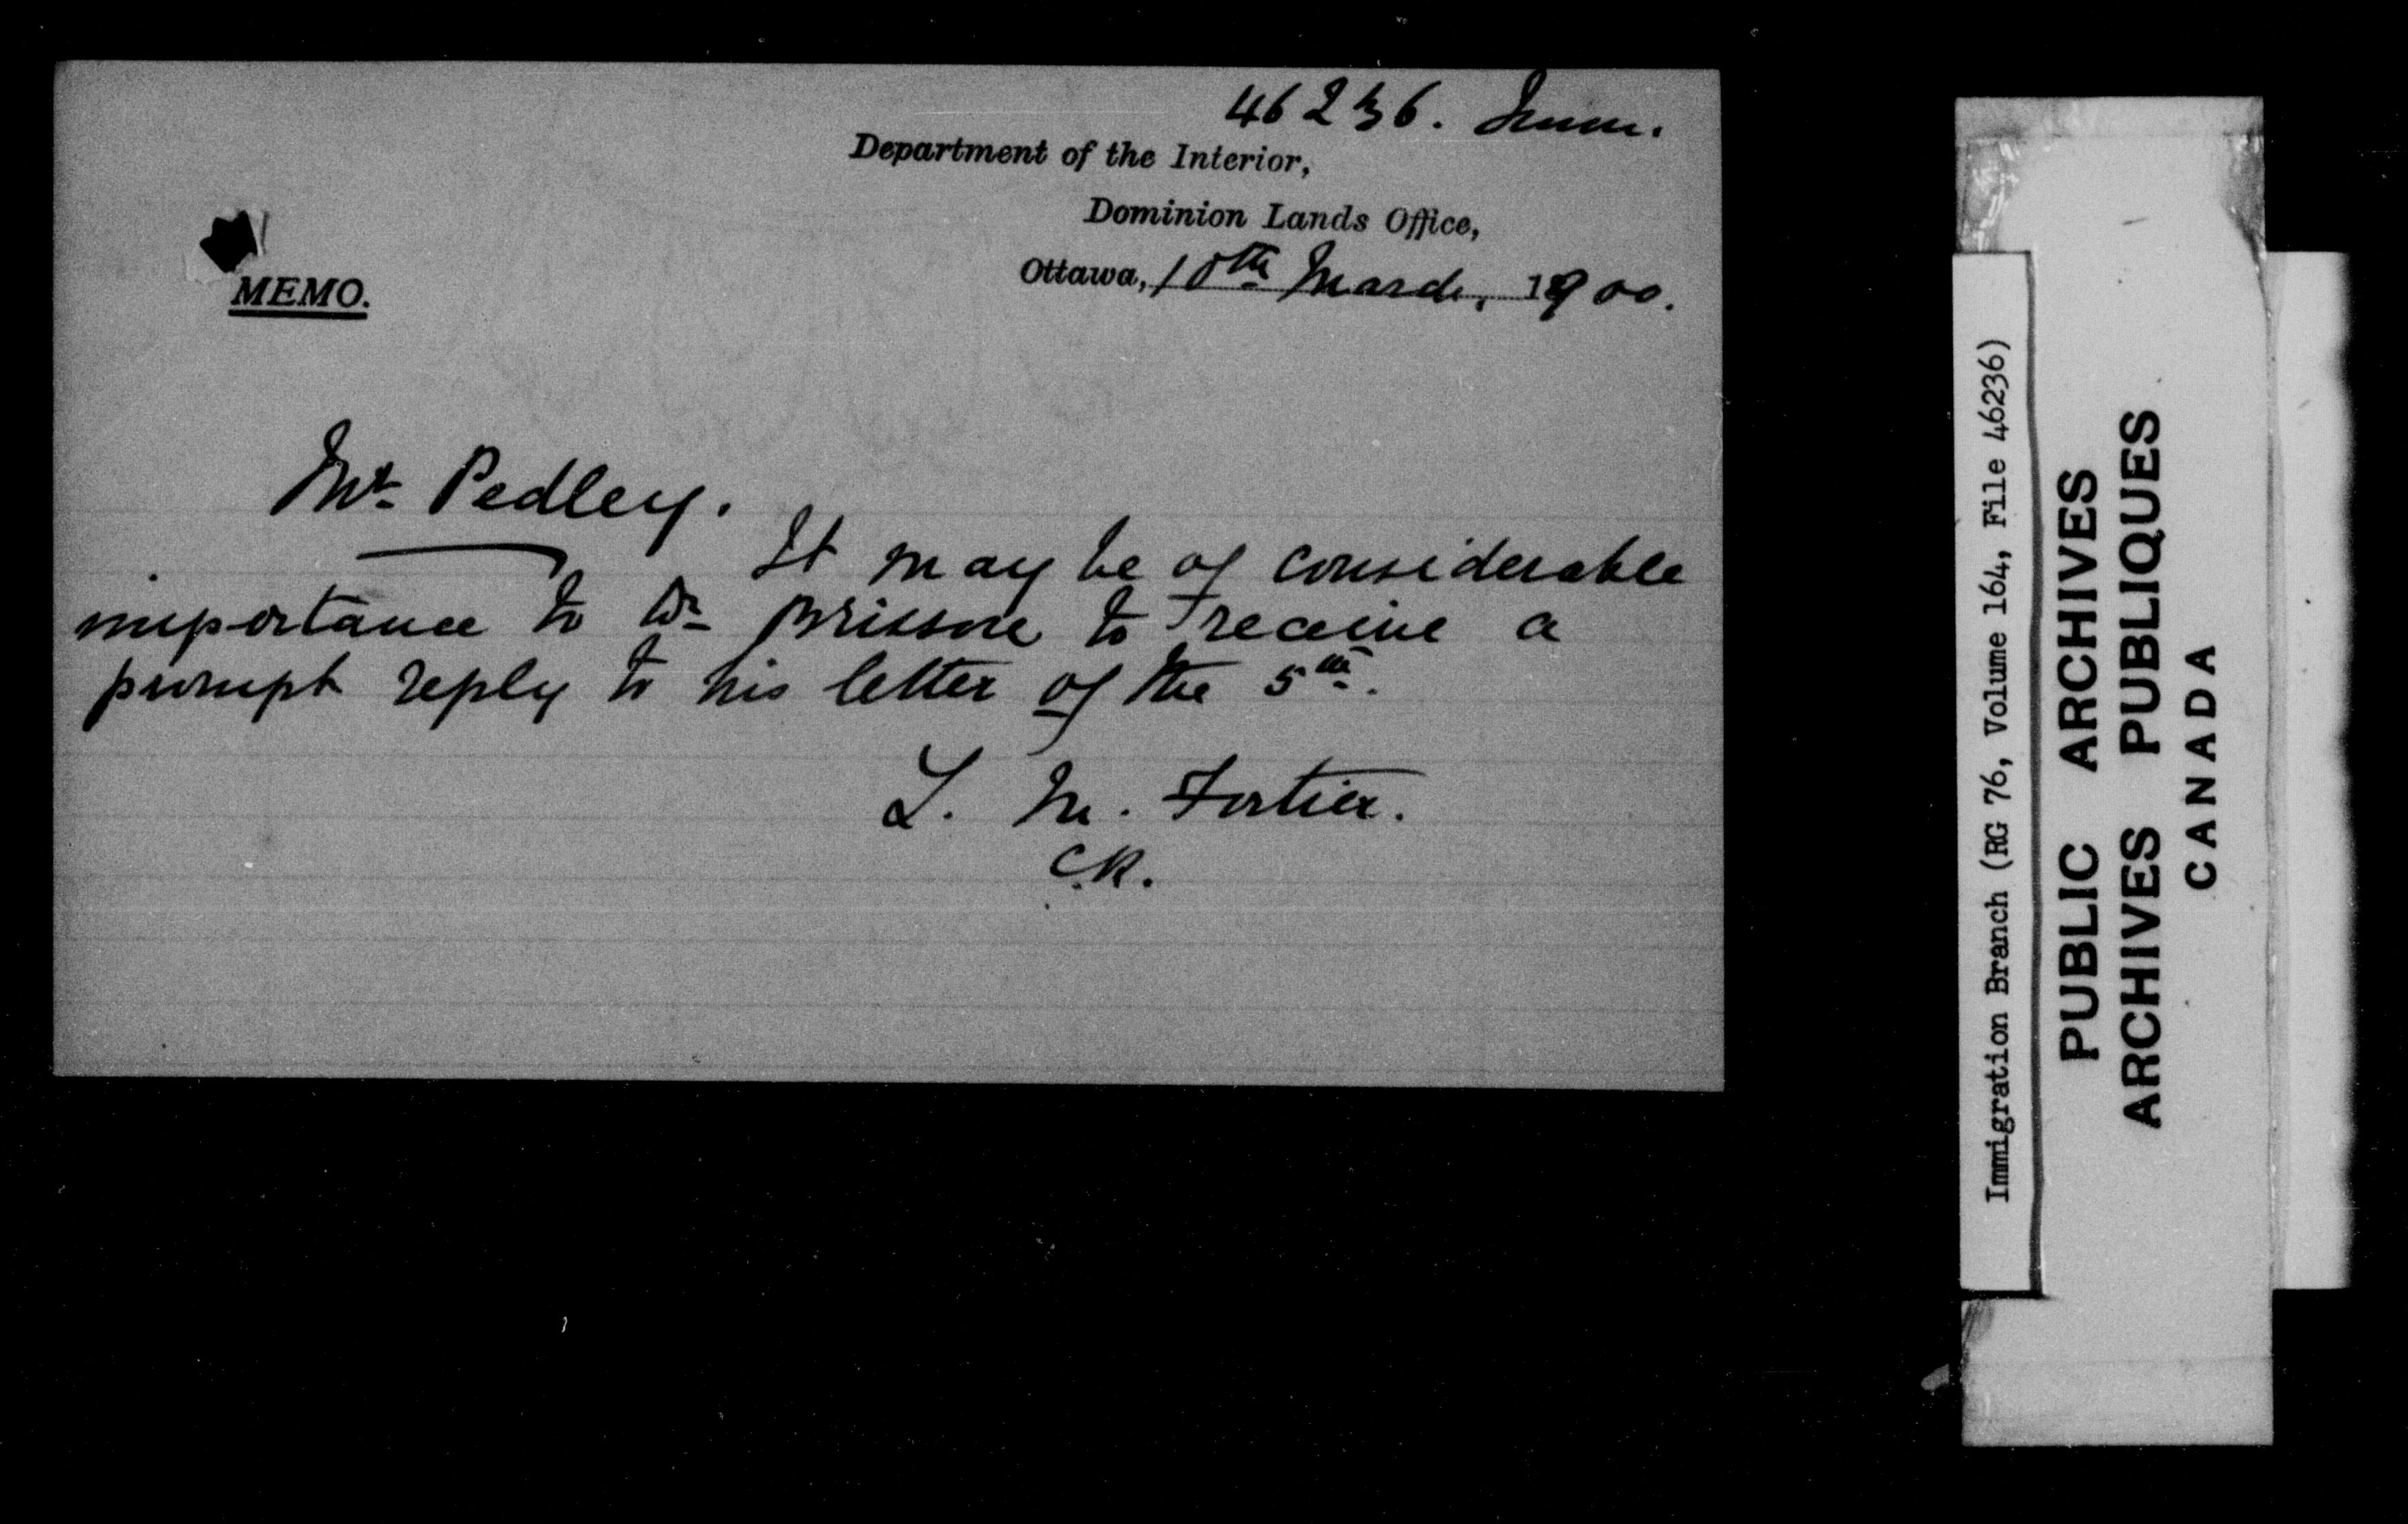 46236. Imm.
Department of the Interior,
Dominion Lands Office,
Ottawa, 10th March, 1900.
MEMO.
Mr. Pedley.
It may be of considerable
importance to Dr. Brisson to receive a
prompt reply to his letter of the 5th.
L. M. Fortier.
C.R.
Immigration Branch (RG 76, Volume 164, File 46236)
PUBLIC ARCHIVES
ARCHIVES PUBLIQUES
CANADA